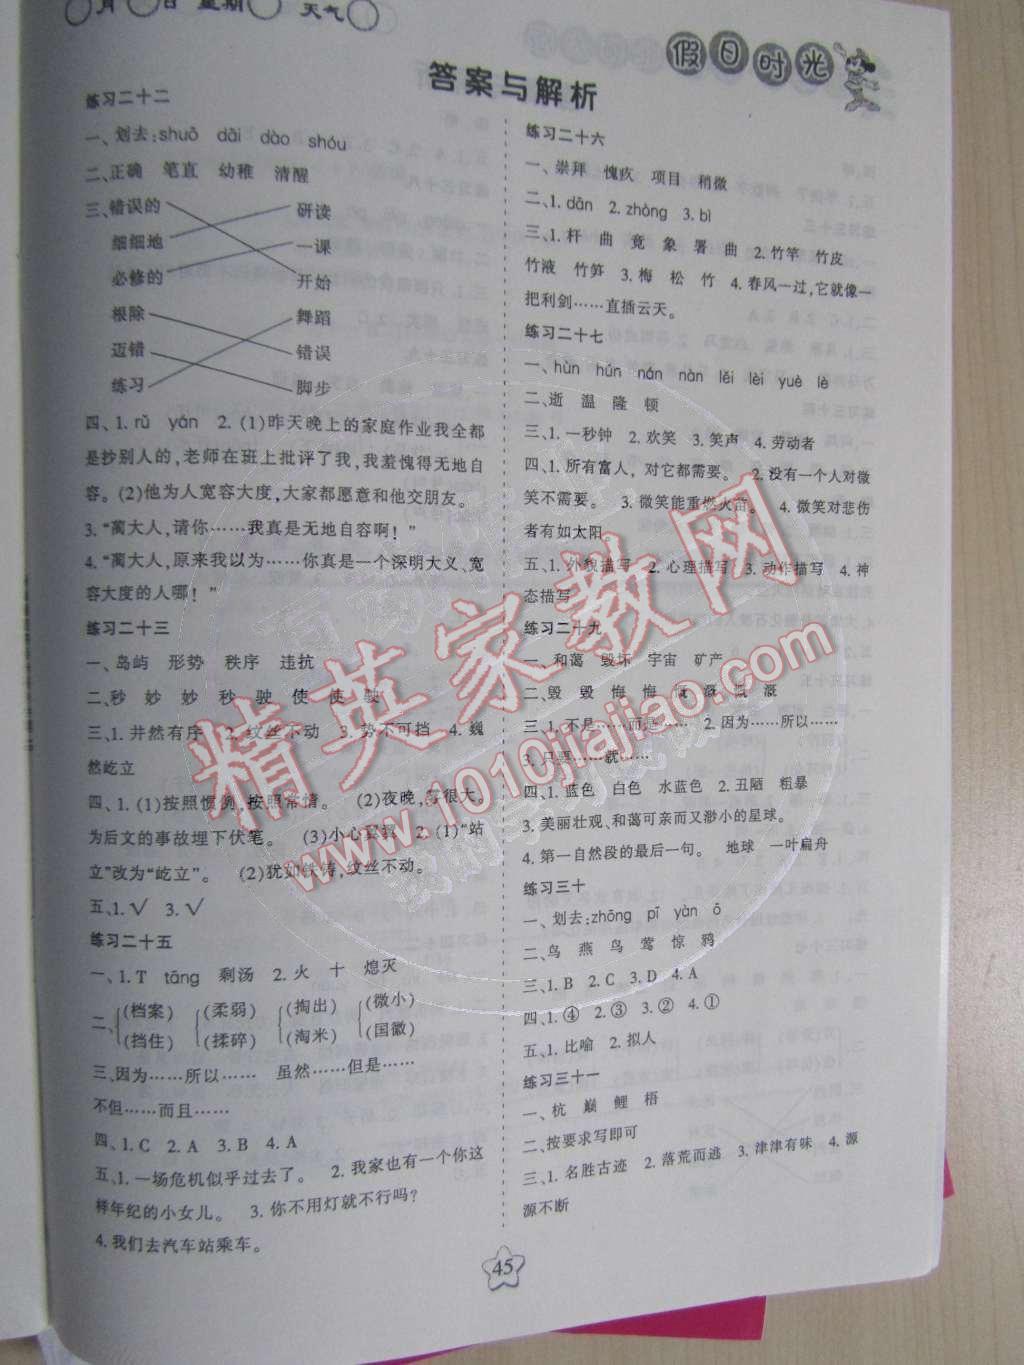 月 日 星期 天气
假日时光
答案与解析
练习二十二
一、划去:shuō dāi dào shóu
二、正确 笔直 幼稚 清醒
三、错误的 研读
细细地 一课
必修的 开始
根除 舞蹈
迈错 错误
练习 脚步
四、1. rǔ yán 2. (1)昨天晚上的家庭作业我全都
是抄别人的,老师在班上批评了我,我羞愧得无地自
容。(2)他为人宽容大度,大家都愿意和他交朋友。
3. “蔺大人,请你……我真是无地自容啊!”
4. “蔺大人,原来我以为……你真是一个深明大义、宽
容大度的人哪!”
练习二十三
一、岛屿 形势 秩序 违抗
二、秒 妙 妙 秒 驶 使 使 驶
三、1. 井然有序 2. 纹丝不动 3. 势不可挡 4. 巍
然屹立
四、1. (1)按照惯例,按照常情。 (2)夜晚,雾很大。
为后文的事故埋下伏笔。 (3)小心翼翼 2. (1)“站
立”改为“屹立”。 (2)犹如铁铸,纹丝不动。
五、1. √ 3. √
练习二十五
一、1. T tāng 剩汤 2. 火 十 熄灭
二、(档案) (柔弱) (掏出) (微小)
(挡住) (揉碎) (淘米) (国徽)
三、因为……所以…… 虽然……但是……
不但……而且……
四、1. C 2. A 3. B 4. A
五、1. 一场危机似乎过去了。 2. 我家也有一个你这
样年纪的小女儿。 3. 你不用灯就不行吗?
4. 我们去汽车站乘车。
练习二十六
一、崇拜 愧疚 项目 稍微
二、1. dān 2. zhòng 3. bì
三、1. 杆 曲 竟 象 署 曲 2. 竹竿 竹皮
竹液 竹笋 3. 梅 松 竹 4. 春风一过,它就像一
把利剑……直插云天。
练习二十七
一、hùn hún nán nàn lěi lèi yuè lè
二、逝 温 隆 顿
三、1. 一秒钟 2. 欢笑 3. 笑声 4. 劳动者
四、1. 所有富人,对它都需要。 2. 没有一个人对微
笑不需要。 3. 微笑能重燃火苗。 4. 微笑对悲伤
者有如太阳
五、1. 外貌描写 2. 心理描写 3. 动作描写 4. 神
态描写
练习二十九
一、和蔼 毁坏 宇宙 矿产
二、毁 毁 悔 悔 慨 溉 慨 溉
三、1. 不是……而是…… 2. 因为……所以……
3. 只要……就……
四、1. 蓝色 白色 水蓝色 2. 丑陋 粗暴
3. 美丽壮观、和蔼可亲而又渺小的星球。
4. 第一自然段的最后一句。 地球 一叶扁舟
练习三十
一、划去:zhōng pī yàn ō
二、鸟 燕 鸟 莺 惊 鸦
三、1. B 2. C 3. D 4. A
四、1. ④ 2. ③ 3. ② 4. ①
五、1. 比喻 2. 拟人
练习三十一
一、杭 巅 鲤 梧
二、按要求写即可
三、1. 名胜古迹 2. 落荒而逃 3. 津津有味 4. 源
源不断
45
精英家教网
www.1010jiajiao.com